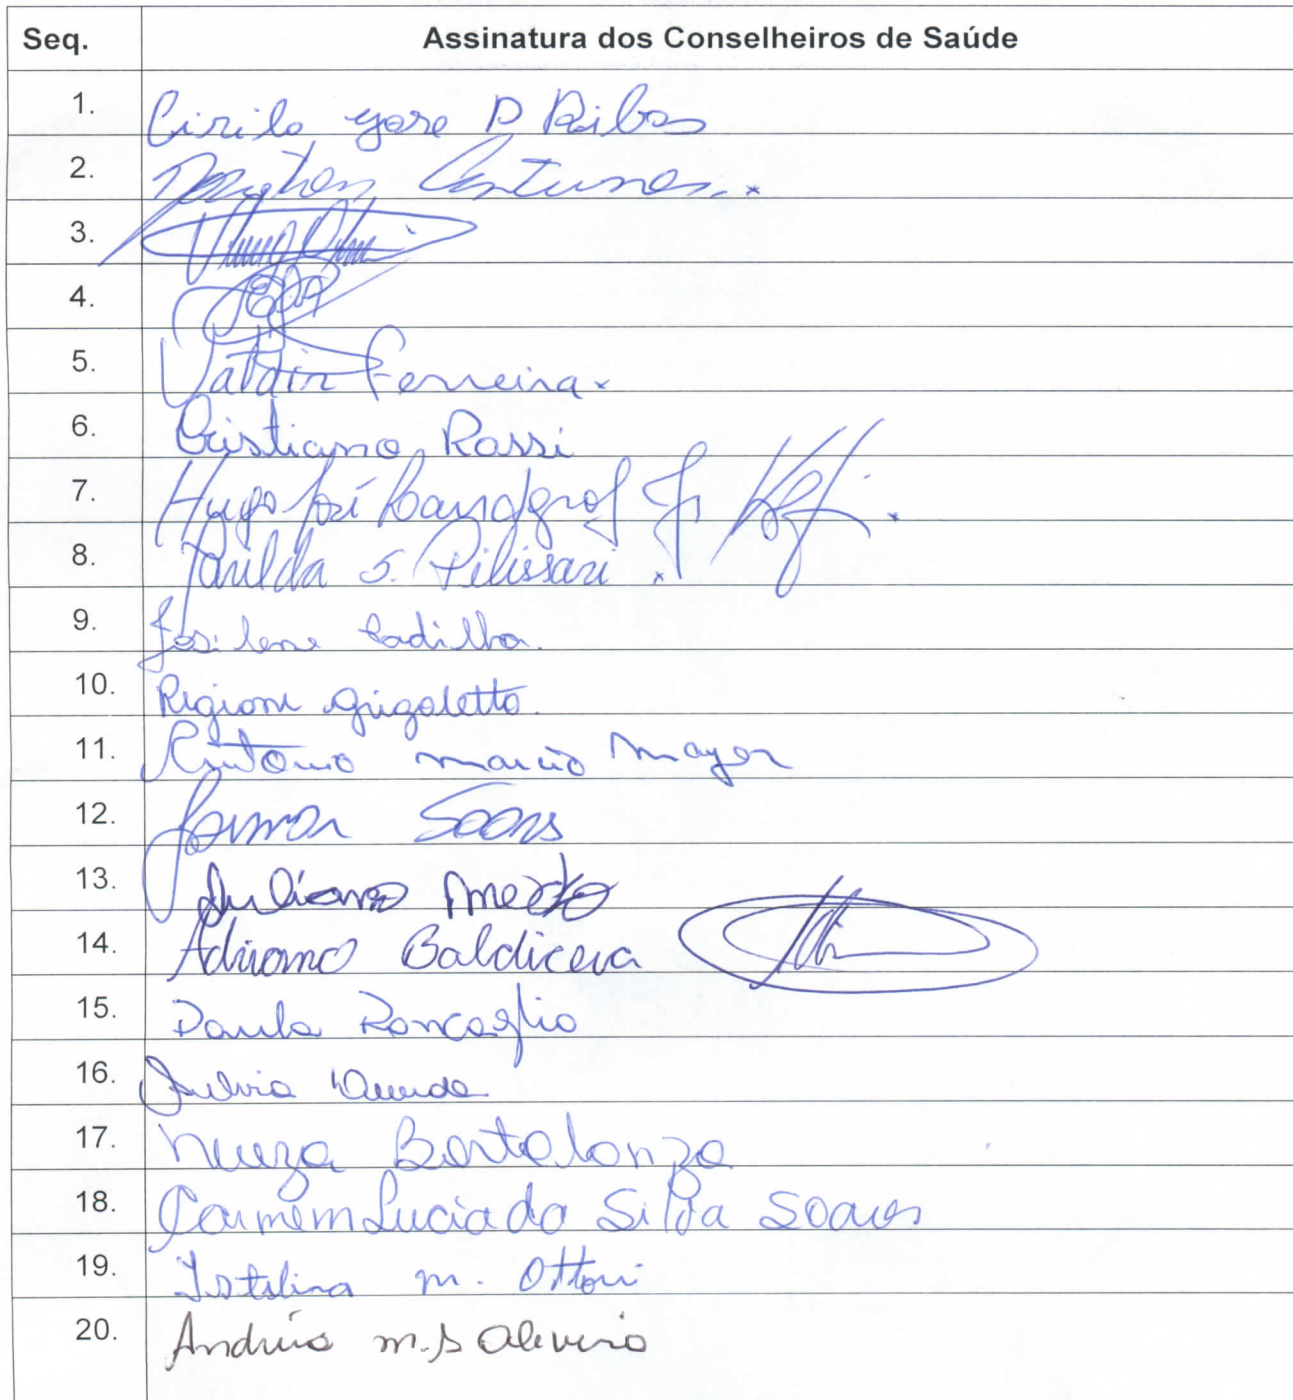 Seq. Assinatura dos Conselheiros de Saúde
1. Cirilo yose P Ribas
2. Antunes
3.
4.
5. Valdir Ferreira
6. Cristiano Rossi
7. Hugo José
8. S.
9. Josilene Padilha.
10. Regiani Grigoletto.
11. Antonio marcio Mayer
12. Soares
13. Juliano
14. Adriano Baldicera
15. Paula Roncaglio
16. Silvia
17. Neuza Bortolonza
18. Carmem Lucia da Silva Soares
19. m. Ottoni
20. Andréia m.s Oliveira